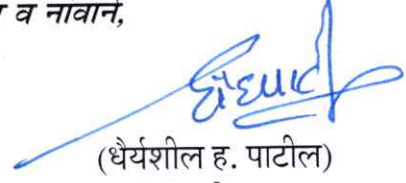 व नावाने,
(धैर्यशील ह. पाटील)